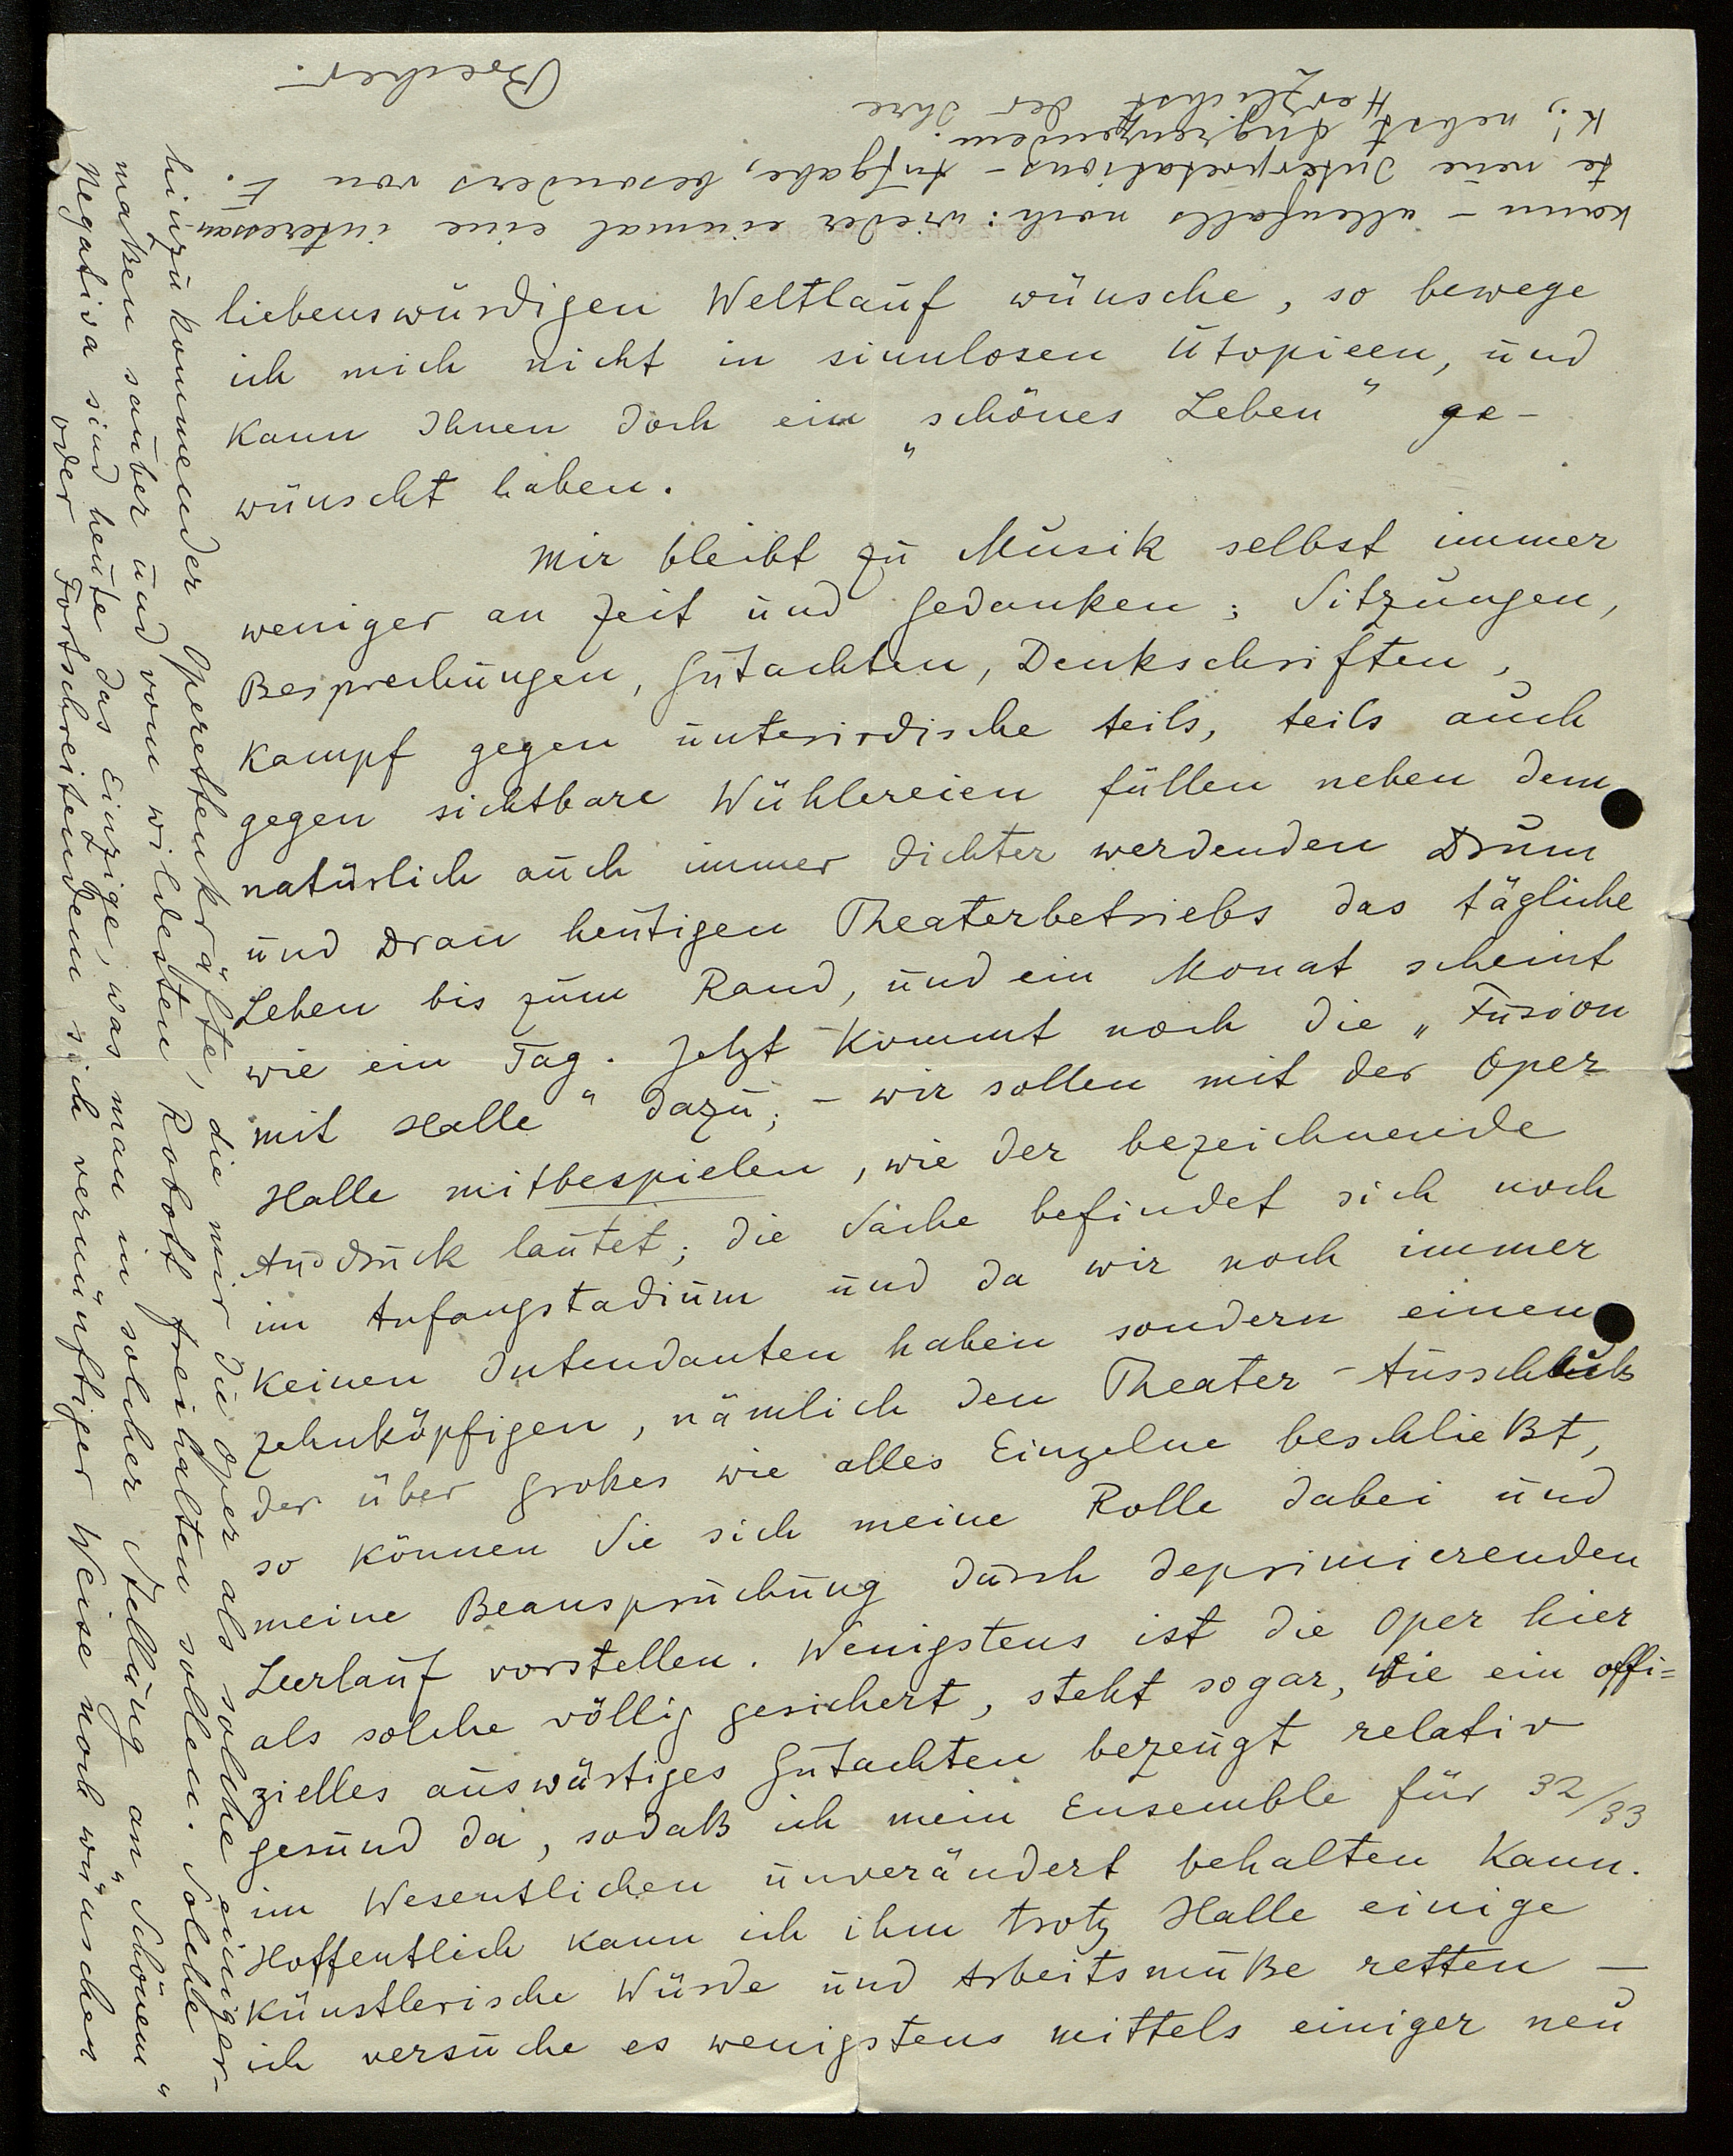 liebenswürdigen Weltlauf wünsche, so bewege
ich mich nicht in sinnlosen Utopieen, und
kann Ihnen doch ein „schönes Leben" ge-
wünscht haben.
Mir bleibt zu Musik selbst immer
weniger an Zeit und Gedanken; Sitzungen,
Besprechungen, Gutachten, Denkschriften,
Kampf gegen unterirdische teils, teils auch
gegen sichtbare Wühlereien füllen neben dem
natürlich auch immer dichter werdenden Drum
und Dran heutigen Theaterbetriebs das tägliche
Leben bis zum Rand, und ein Monat scheint
wie ein Tag. Jetzt kommt noch die „Fusion
mit Halle" dazu; – wir sollen mit der Oper
Halle mitbespielen, wie der bezeichnende
Ausdruck lautet; die Sache befindet sich noch
im Anfangstadium und da wir noch immer
keinen Intendanten haben sondern einen
zehnköpfigen, nämlich den Theater-Ausschuß
der über Großes wie alles Einzelne beschließt,
so können Sie sich meine Rolle dabei und
meine Beanspruchung durch deprimierenden
Leerlauf vorstellen. Wenigstens ist die Oper hier
als solche völlig gesichert, steht sogar, wie ein offi=
zielles auswärtiges Gutachten bezeugt relativ
gesund da, sodaß ich mein Ensemble für 32/33
im Wesentlichen unverändert behalten kann.
Hoffentlich kann ich ihm trotz Halle einige
künstlerische Würde und Arbeitsmuße retten —
ich versuche es wenigstens mittels einiger neu
hinzukommender Operettenkräfte, die mir die Oper als solche einiger-
maßen sauber und vom wildesten Robott freihalten sollen. Solche
Negativa sind heute das Einzige, was man in solcher Stellung an „Schönem"
oder Fortschreitendem sich vernünftiger Weise noch wünschen
kann – allenfalls noch: wieder einmal eine interessan-
te neue Interpretations-Aufgabe, besonders von E.
K., nebst Angrenzendem.
Herzlichst der Ihre
Brecher.